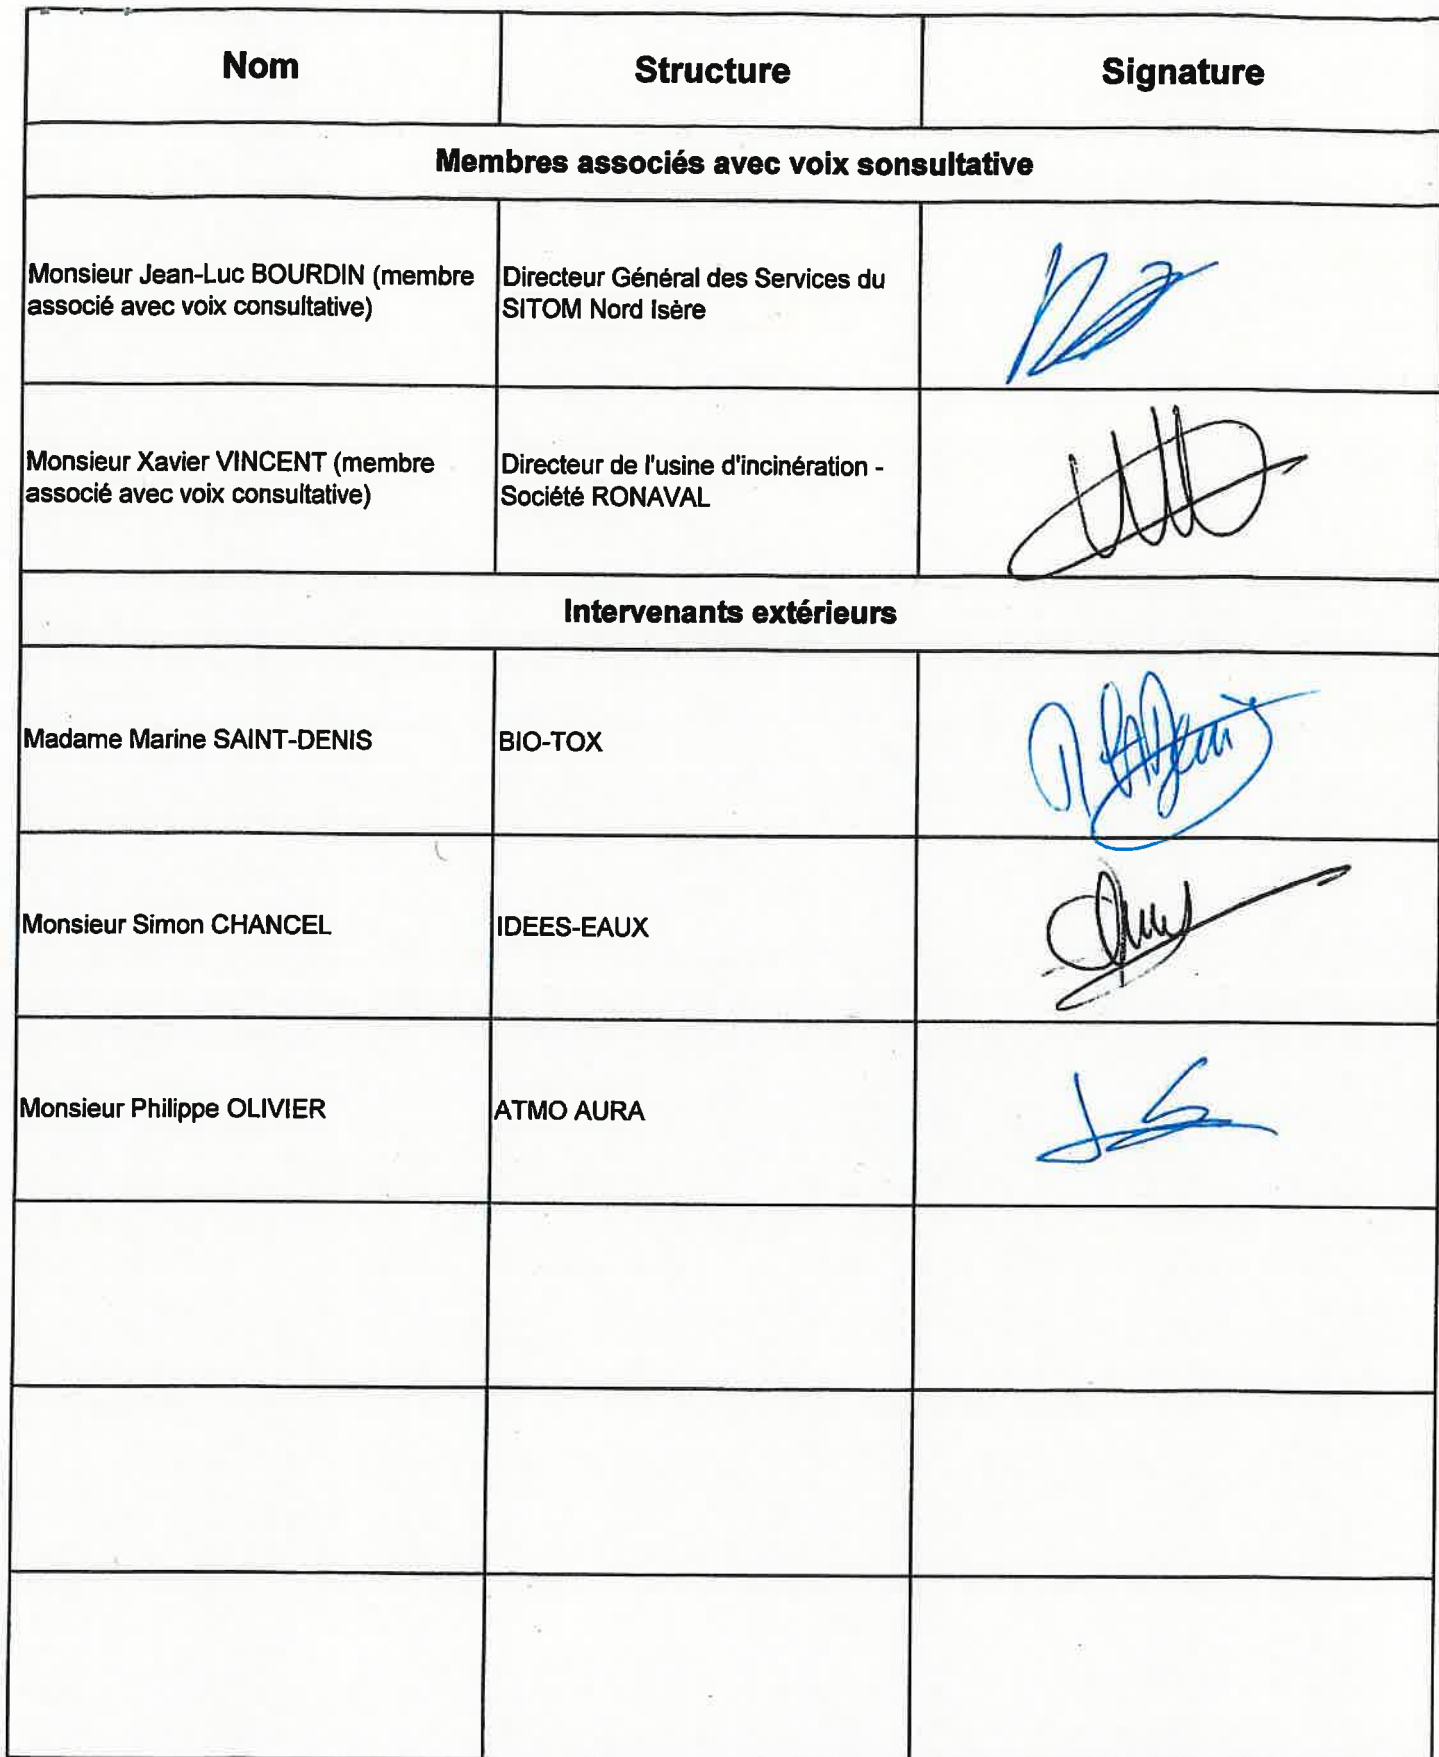 Nom Structure Signature
Membres associés avec voix sonsultative
Monsieur Jean-Luc BOURDIN (membre
associé avec voix consultative)
Directeur Général des Services du
SITOM Nord Isère
Monsieur Xavier VINCENT (membre
associé avec voix consultative)
Directeur de l'usine d'incinération -
Société RONAVAL
Intervenants extérieurs
Madame Marine SAINT-DENIS
BIO-TOX
Monsieur Simon CHANCEL
IDEES-EAUX
Monsieur Philippe OLIVIER
ATMO AURA